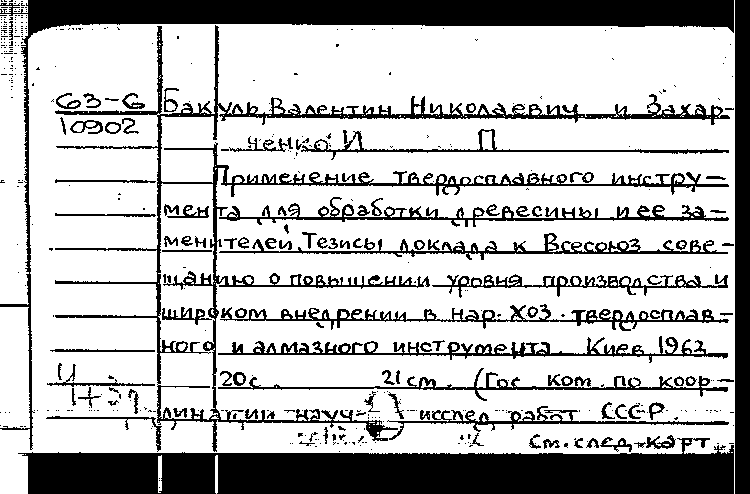 63-6 Бакуль, Валентин Николаевич и Захар-
10902
ченко, И П
Применение твердосплавного инстру-
мента для обработки древесины и ее за-
менителей. Тезисы доклада к Всесоюз. сове-
щанию о повышении уровня производства и
широком внедрении в нар. хоз. твердосплав-
ного и алмазного инструмента. Киев, 1963
20с. 21см. (Гос. ком. по коор-
динации науч- исслед. работ СССР.
см. след. карт.